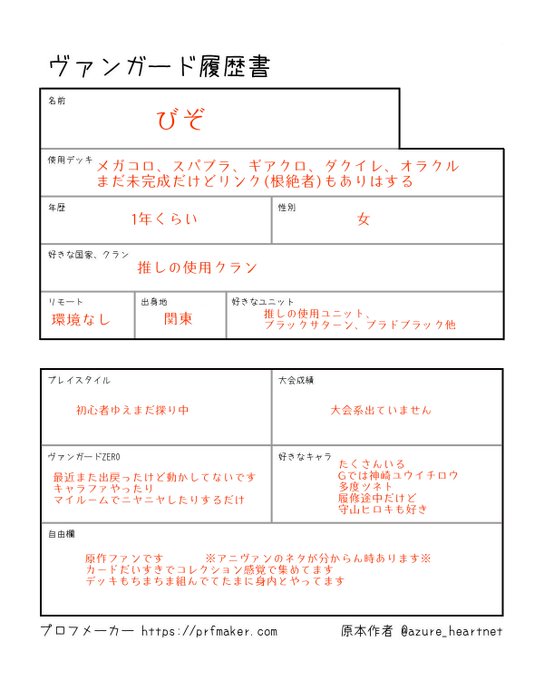 ヴァンガード履歴書
名前
びぞ
使用デッキ
メガコロ、スパブラ、ギアクロ、ダクイレ、オラクル
まだ未完成だけどリンク(根絶者)もありはする
年歴
1年くらい
性別
女
好きな国家、クラン
推しの使用クラン
リモート
環境なし
出身地
関東
好きなユニット
推しの使用ユニット、
ブラックサターン、ブラドブラック他
プレイスタイル
初心者ゆえまだ探り中
大会成績
大会系出ていません
ヴァンガードZERO
最近また出戻ったけど動かしてないです
キャラファやったり
マイルームでニヤニヤしたりするだけ
好きなキャラ
たくさんいる
Gでは神崎ユウイチロウ
多度ツネト
履修途中だけど
守山ヒロキも好き
自由欄
原作ファンです ※アニヴァンのネタが分からん時あります※
カードだいすきでコレクション感覚で集めてます
デッキもちまちま組んでてたまに身内とやってます
プロフメーカー https://prfmaker.com
原本作者 @azure_heartnet